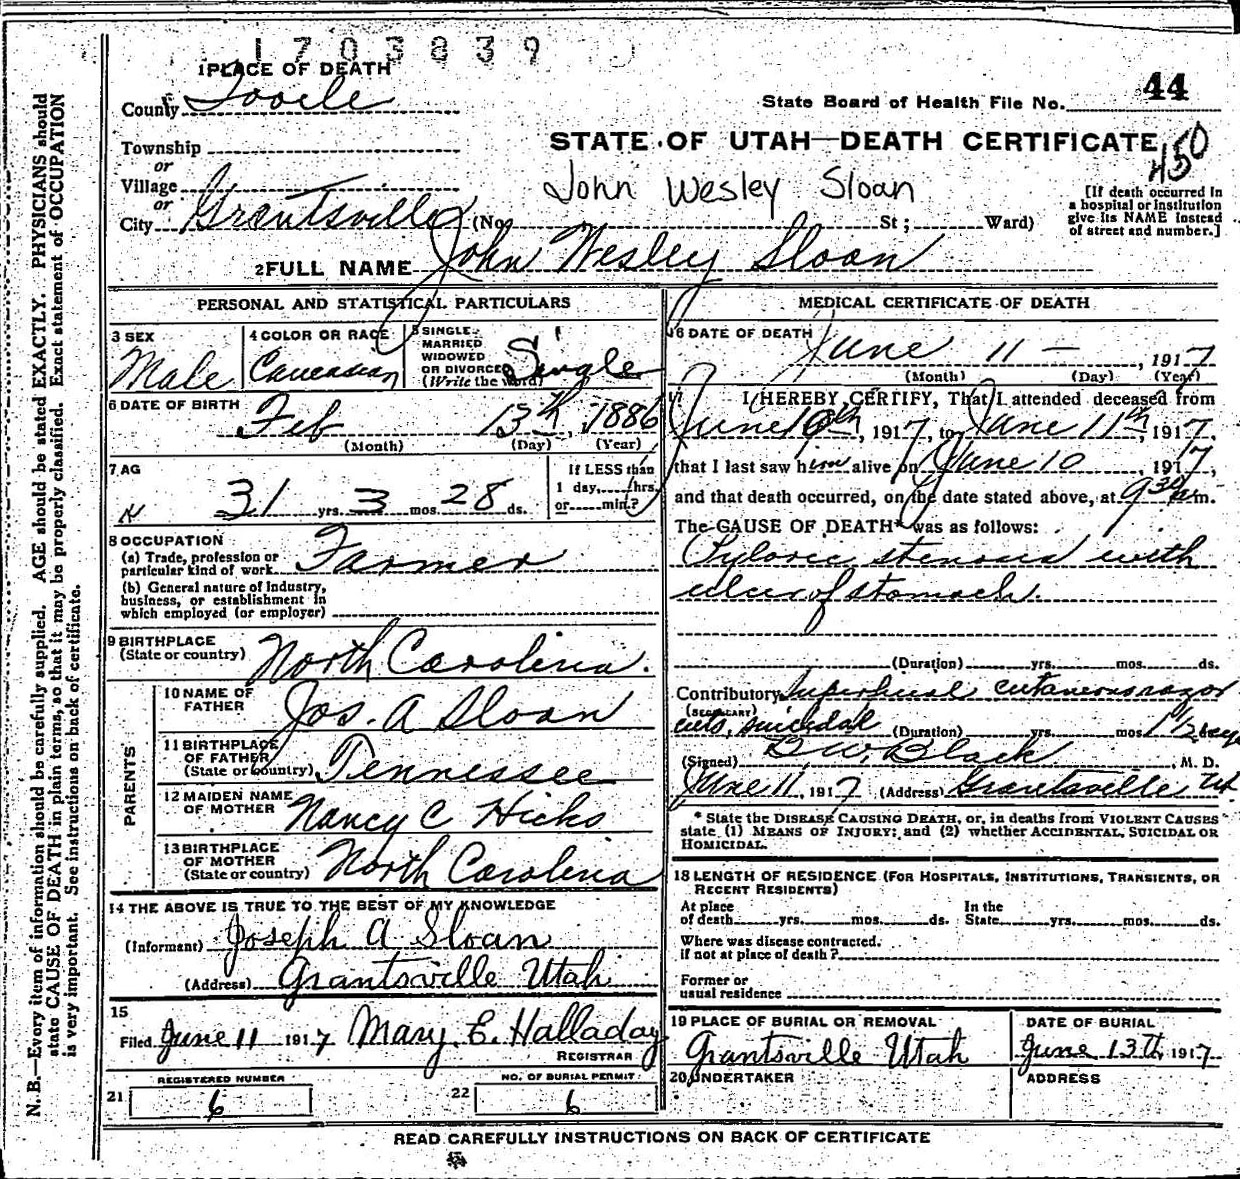 1703839
1 PLACE OF DEATH
County Tooele
44
State Board of Health File No.
Township
STATE OF UTAH—DEATH CERTIFICATE
450
or
Village
John Wesley Sloan
or
City Grantsville (No. St; Ward)
[If death occurred in
a hospital or institution
give its NAME instead
of street and number.]
2 FULL NAME John Wesley Sloan
PERSONAL AND STATISTICAL PARTICULARS
3 SEX
Male
4 COLOR OR RACE
Caucasian
5 SINGLE
MARRIED
WIDOWED
OR DIVORCED
(Write the word)
Single
6 DATE OF BIRTH
Feb 13th, 1886
(Month) (Day) (Year)
7 AG
31 yrs. 3 mos. 28 ds.
If LESS than
1 day, hrs.
or min.?
8 OCCUPATION
(a) Trade, profession or
particular kind of work
Farmer
(b) General nature of Industry,
business, or establishment in
which employed (or employer)
9 BIRTHPLACE
(State or country)
North Carolina.
PARENTS
10 NAME OF
FATHER
Jos. A Sloan
11 BIRTHPLACE
OF FATHER
(State or country)
Tennessee
12 MAIDEN NAME
OF MOTHER
Nancy C Hicks
13 BIRTHPLACE
OF MOTHER
(State or country)
North Carolina
14 THE ABOVE IS TRUE TO THE BEST OF MY KNOWLEDGE
(Informant) Joseph A Sloan
(Address) Grantsville Utah
15
Filed June 11 1917 Mary E. Halladay
REGISTRAR
REGISTERED NUMBER
21 6
NO. OF BURIAL PERMIT
22 6
MEDICAL CERTIFICATE OF DEATH
16 DATE OF DEATH
June 11 — , 1917
(Month) (Day) (Year)
17 I HEREBY CERTIFY, That I attended deceased from
June 10th, 1917, to June 11th, 1917,
that I last saw him alive on June 10, 1917,
and that death occurred, on the date stated above, at 930 m.
The CAUSE OF DEATH* was as follows:
Pyloric stenosis with
ulcer of stomach.
(Duration) yrs. mos. ds.
Contributory Superficial cutaneous razor
(SECONDARY)
cuts, suicidal (Duration) yrs. mos. 1 1/2 days
(Signed) D. W. Black, M. D.
June 11, 1917 (Address) Grantsville Ut
* State the DISEASE CAUSING DEATH, or, in deaths from VIOLENT CAUSES
state (1) MEANS OF INJURY; and (2) whether ACCIDENTAL, SUICIDAL OR
HOMICIDAL.
18 LENGTH OF RESIDENCE (FOR HOSPITALS, INSTITUTIONS, TRANSIENTS, OR
RECENT RESIDENTS)
At place
of death yrs. mos. ds.
In the
State yrs. mos. ds.
Where was disease contracted.
if not at place of death?
Former or
usual residence
19 PLACE OF BURIAL OR REMOVAL
Grantsville Utah
DATE OF BURIAL
June 13th, 1917
20 UNDERTAKER
ADDRESS
READ CAREFULLY INSTRUCTIONS ON BACK OF CERTIFICATE
N. B.—Every item of information should be carefully supplied. AGE should be stated EXACTLY. PHYSICIANS should
state CAUSE OF DEATH in plain terms, so that it may be properly classified. Exact statement of OCCUPATION
is very important. See instructions on back of certificate.